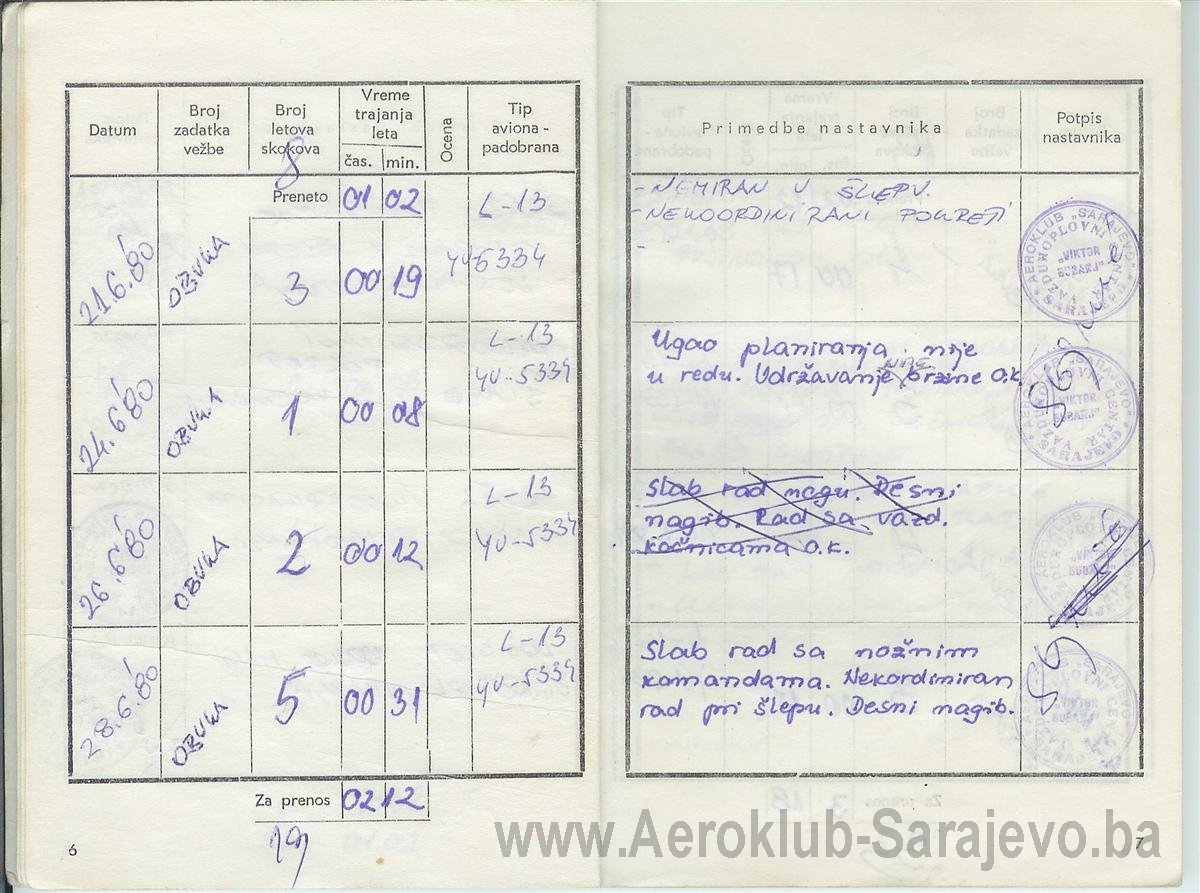 Datum
Broj
zadatka
vežbe
Broj
letova
skokova
8
Vreme
trajanja
leta
čas. min.
Ocena
Tip
aviona -
padobrana
Preneto 01 02
21.6.'80 OBUKA 3 00 19 L-13
YU-5334
24.6'80 OBUKA 1 00 08 L-13
YU-5334
26.6'80 OBUKA 2 00 12 L-13
YU-5334
28.6.'80 OBUKA 5 00 31 L-13
YU-5334
Za prenos 02 12
19
6
Primedbe nastavnika
Potpis
nastavnika
- NEMIRAN U ŠLEPU.
- NEKOORDINIRANI POKRETI
-
AEROKLUB „SARAJEVO"
VAZDUHOPLOVNI CENTAR
„VIKTOR
BUBANJ"
SARAJEVO
Ugao planiranja nije
u redu. Udržavanje NIJE brzine O.K.
AEROKLUB „SARAJEVO"
„VIKTOR
BUBANJ"
SARAJEVO
Slab rad nogu. Desni
nagib. Rad sa vazd.
kočnicama O.K.
AEROKLUB
Slab rad sa nožnim
komandama. Nekordiniran
rad pri šlepu. Desni nagib.
SARAJEVO
„VIKTOR
BUBANJ"
7
www.Aeroklub-Sarajevo.ba